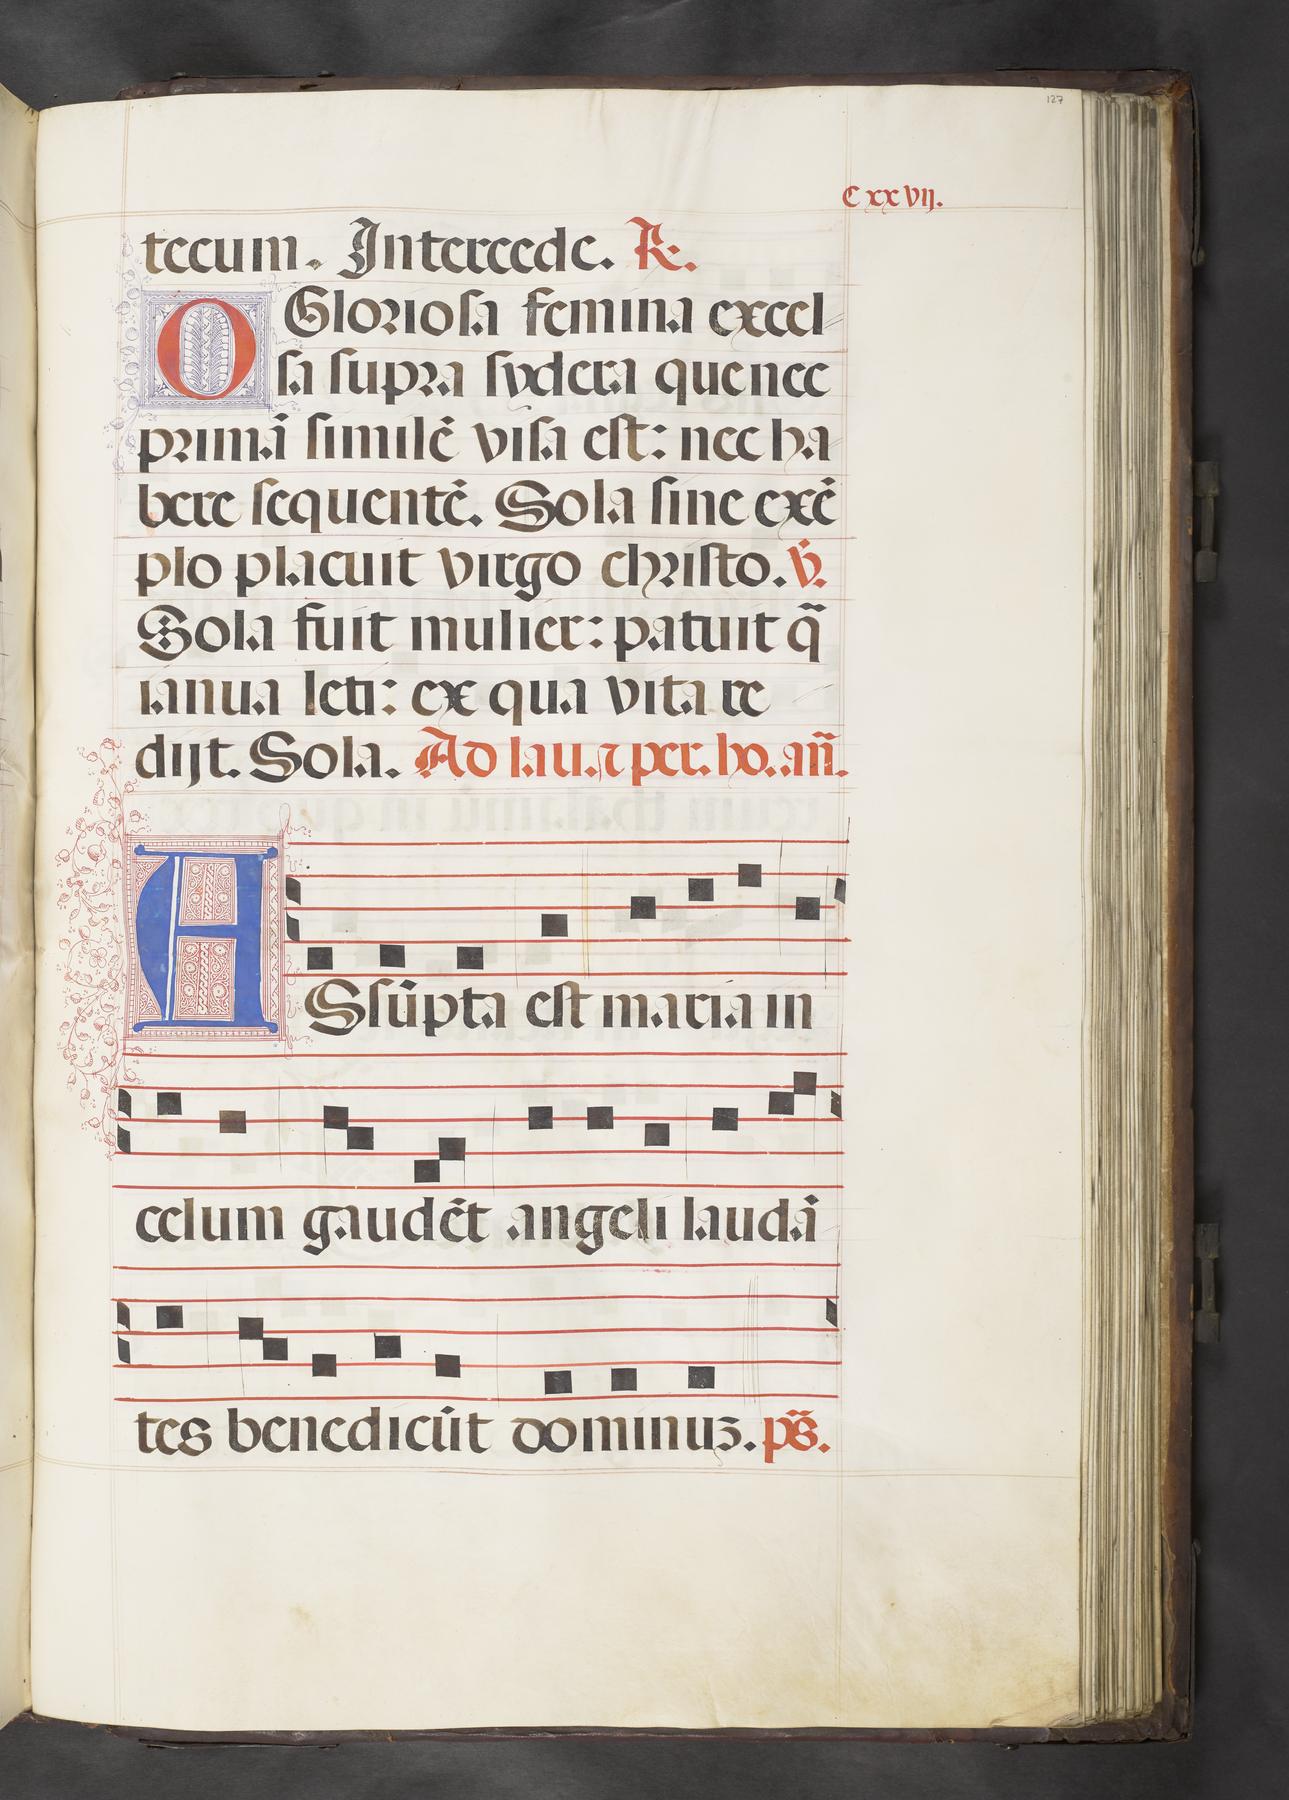 127
C xx vij.
tecum. Intercede. R.
O Gloriosa femina excel
sa supra sydera que nec
primā similē visa est: nec ha
bere sequentē. Sola sine exē
plo placuit virgo christo. V.
Sola fuit mulier: patuit q̄
ianua leti: ex qua vita re
dijt. Sola. Ad lau. ⁊ per. ho. añ.
ASsūpta est maria in
celum gaudēt angeli laudā
tes benedicūt dominuz. ps̄.